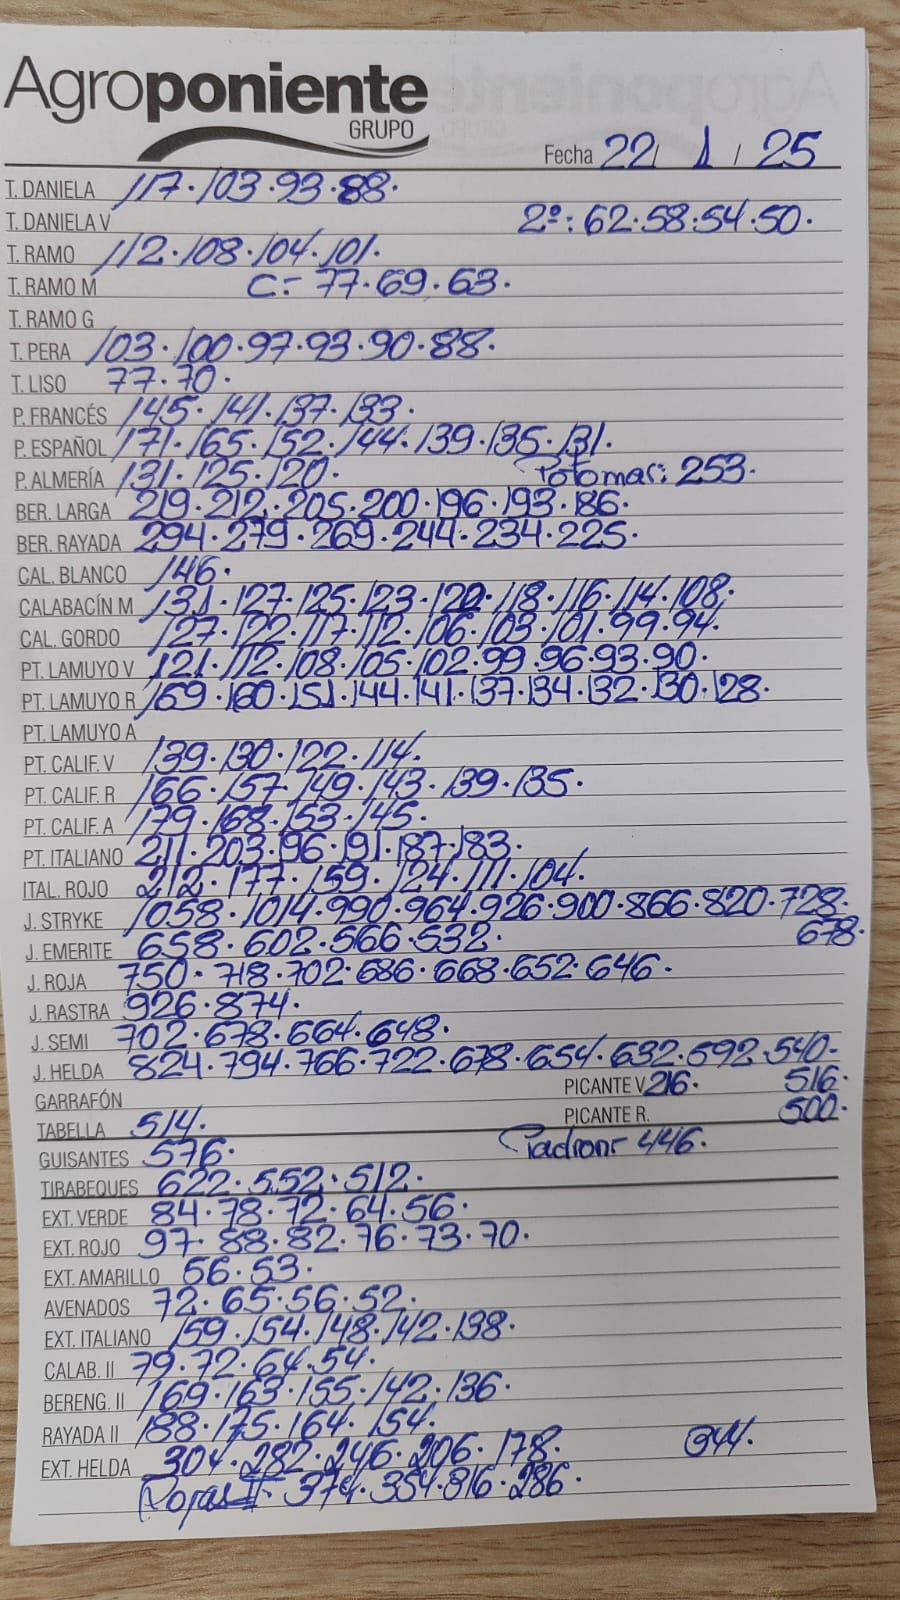 Agroponiente
GRUPO
Fecha 22/ 1 / 25
T. DANIELA 117.103.93.88.
T. DANIELA V 2º: 62.58.54.50.
T. RAMO 112.108.104.101.
T. RAMO M C.- 77.69.63.
T. RAMO G
T. PERA 103.100.97.93.90.88.
T. LISO 77.70.
P. FRANCÉS 145.141.137.133.
P. ESPAÑOL 171.165.152.144.139.135.131.
P. ALMERÍA 131.125.120. Potomac: 253.
BER. LARGA 219.212.205.200.196.193.186.
BER. RAYADA 294.279.269.244.234.225.
CAL. BLANCO 146.
CALABACÍN M 131.127.125.123.120.118.116.114.108.
CAL. GORDO 127.122.117.112.106.103.101.99.94.
PT. LAMUYO V 121.112.108.105.102.99.96.93.90.
PT. LAMUYO R 169.160.151.144.141.137.134.132.130.128.
PT. LAMUYO A
PT. CALIF. V 139.130.122.114.
PT. CALIF. R 166.157.149.143.139.135.
PT. CALIF. A 179.168.153.145.
PT. ITALIANO 211.203.196.191.187.183.
ITAL. ROJO 212.177.159.124.111.104.
J. STRYKE 1058.1014.990.964.926.900.866.820.728.
J. EMERITE 658.602.566.532. 678.
J. ROJA 750.718.702.686.668.652.646.
J. RASTRA 926.874.
J. SEMI 702.678.664.648.
J. HELDA 824.794.766.722.678.654.632.592.540.
GARRAFÓN PICANTE V. 216. 516.
TABELLA 514. PICANTE R. 500.
GUISANTES 576. Padron- 446.
TIRABEQUES 622.552.512.
EXT. VERDE 84.78.72.64.56.
EXT. ROJO 97.88.82.76.73.70.
EXT. AMARILLO 56.53.
AVENADOS 72.65.56.52.
EXT. ITALIANO 159.154.148.142.138.
CALAB. II 79.72.64.54.
BERENG. II 169.163.155.142.136.
RAYADA II 188.175.164.154.
EXT. HELDA 304.282.246.206.178.
Rojas II- 374.354.316.286.